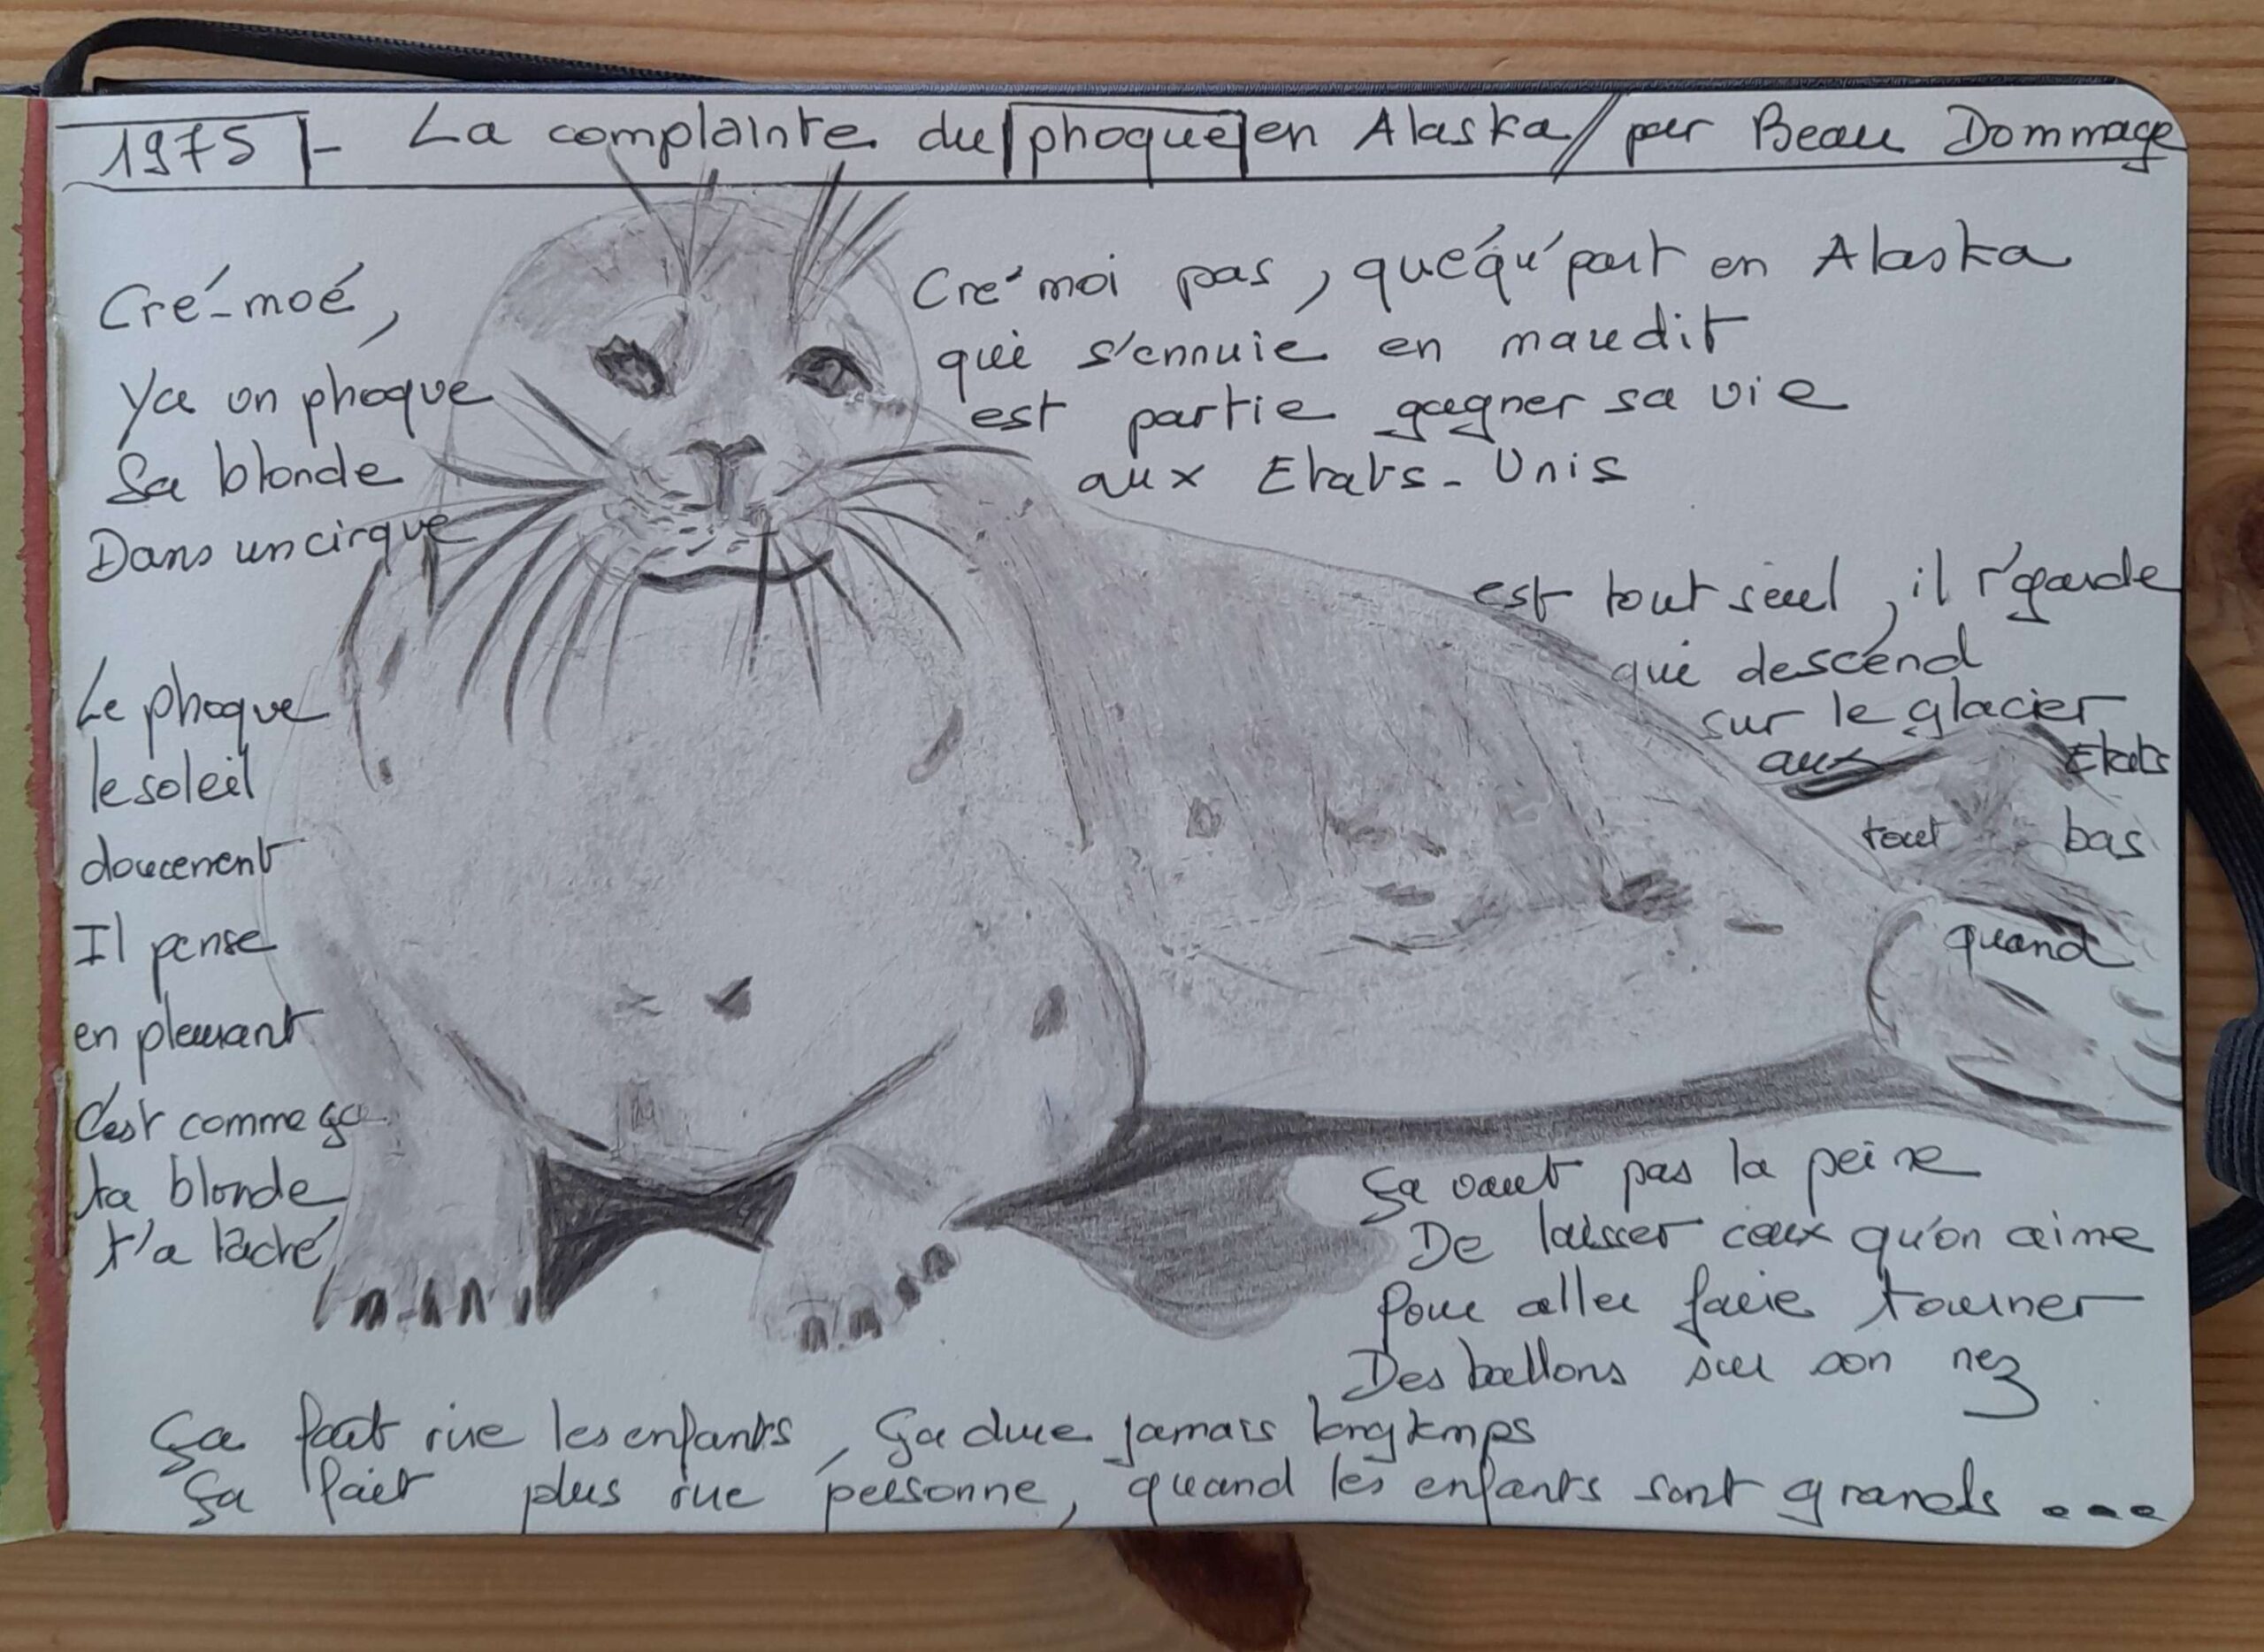 1975 - La complainte du phoque en Alaska // par Beau Dommage
Cré-moé, Cré'moi pas, quéqu'part en Alaska
Ya un phoque qui s'ennuie en maudit
Sa blonde est partie gagner sa vie
Dans un cirque aux Etats-Unis
Le phoque est tout seul, il r'garde
le soleil qui descend
doucement sur le glacier
Il pense aux Etats
en pleurant tout bas
C'est comme ça quand
ta blonde
t'a lâché
Ça vaut pas la peine
De laisser ceux qu'on aime
Pour aller faire tourner
Des ballons sur son nez
Ça fait rire les enfants, Ça dure jamais longtemps
Ça fait plus rire personne, quand les enfants sont grands ...